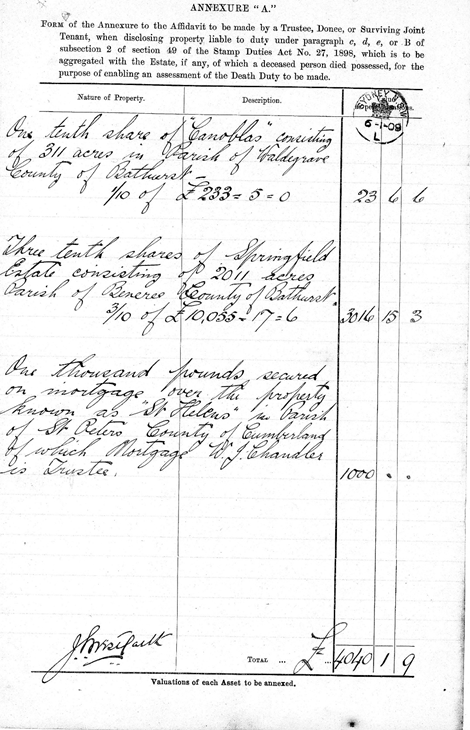 ANNEXURE "A."
FORM of the Annexure to the Affidavit to be made by a Trustee, Donee, or Surviving Joint
Tenant, when disclosing property liable to duty under paragraph c, d, e, or B of
subsection 2 of section 49 of the Stamp Duties Act No. 27, 1898, which is to be
aggregated with the Estate, if any, of which a deceased person died possessed, for the
purpose of enabling an assessment of the Death Duty to be made.
Nature of Property. Description.
SYDNEY N.S.W
6-1-09
L
One tenth share of "Canoblas" consisting
of 311 acres in Parish of Waldegrave
County of Bathurst
1/10 of £233=5=0 23 6 6
Three tenth shares of Springfield
Estate consisting of 2011 acres
Parish of Beneree County of Bathurst
3/10 of £10,055=17=6 3016 15 3
One thousand pounds secured
on mortgage over the property
known as "St Helens" in Parish
of St Peters County of Cumberland
of which Mortgage W. J. Chandler
is Trustee. 1000 . .
TOTAL ... £ ... 4040 1 9
Valuations of each Asset to be annexed.